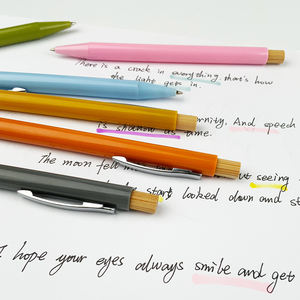 There is a crack in everything, that's how
the light gets in.
ernity. And speech
is shadow as time.
The moon fell
but seeing
start looked down and st
I hope your eyes always smile and get